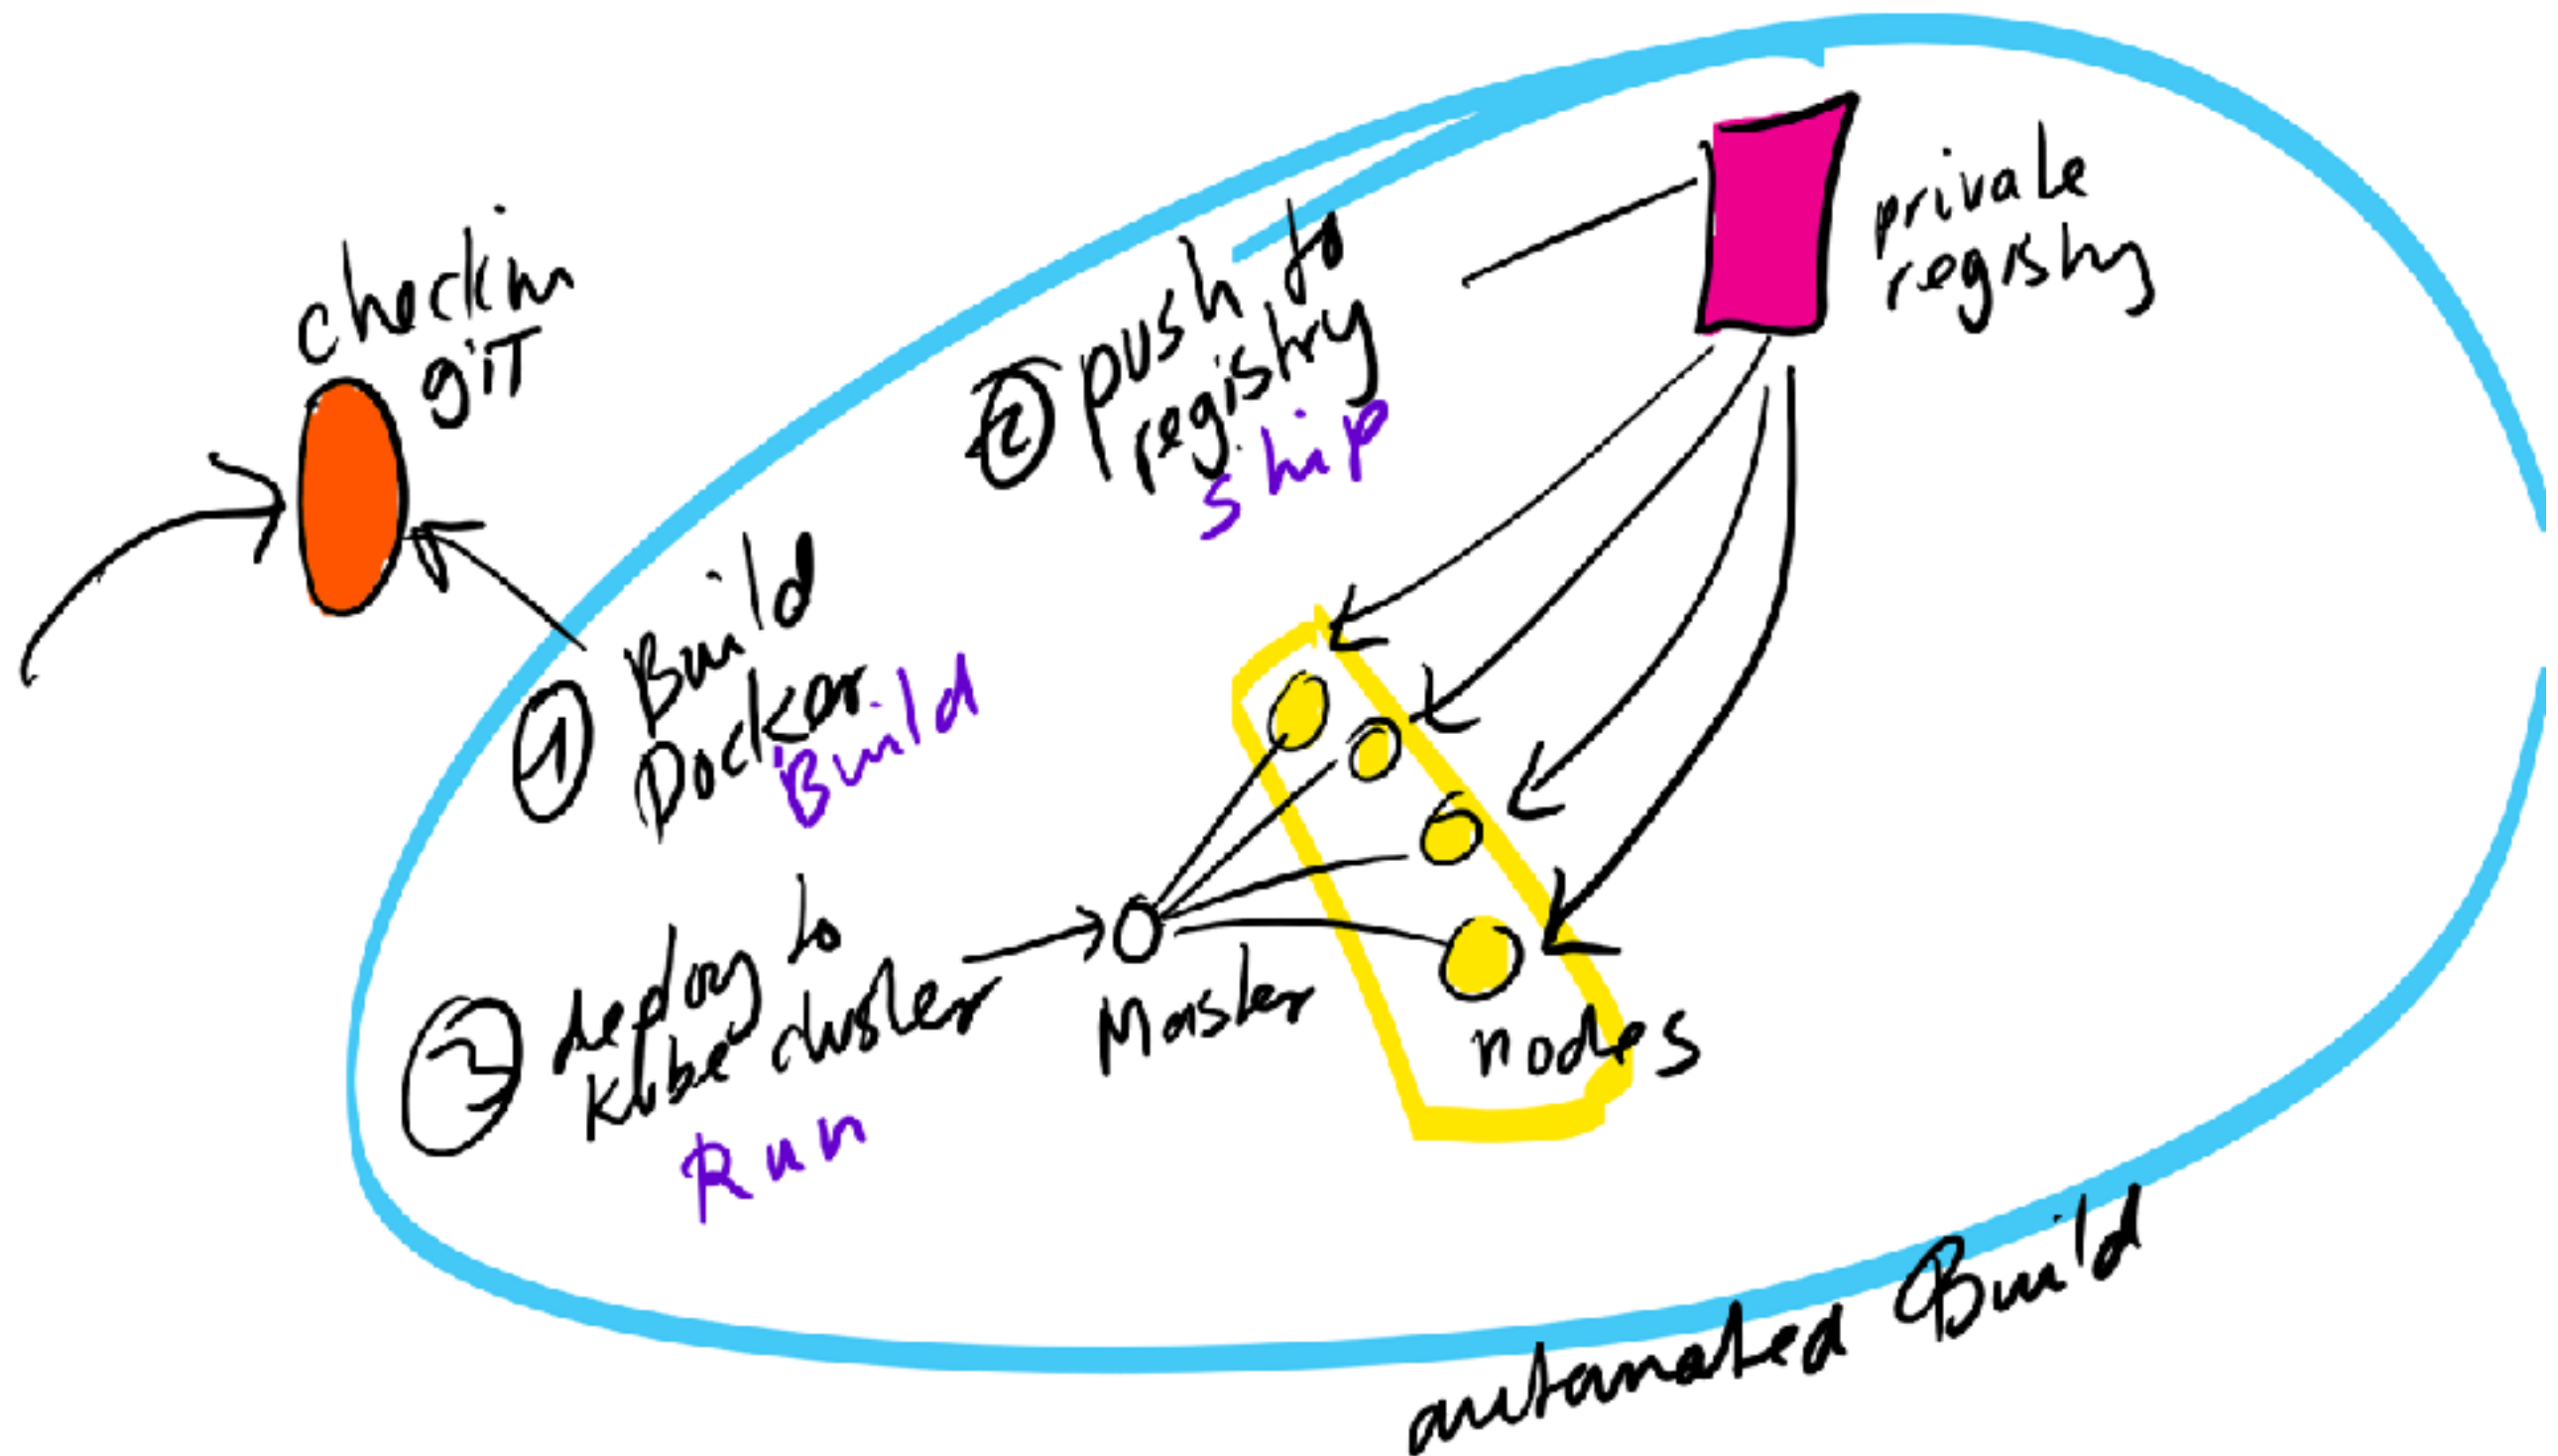 checkin
giT
② push to
registry
ship
private
registry
① Build
Docker
Build
③ deploy to
Kube cluster
Run
Master
nodes
automated Build